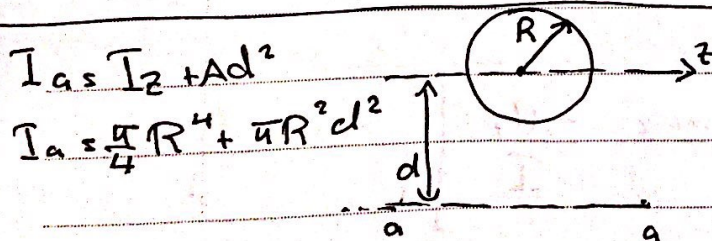 Ia = Iz + Ad²
Ia = π/4 R⁴ + πR²d²
R
z
d
a a